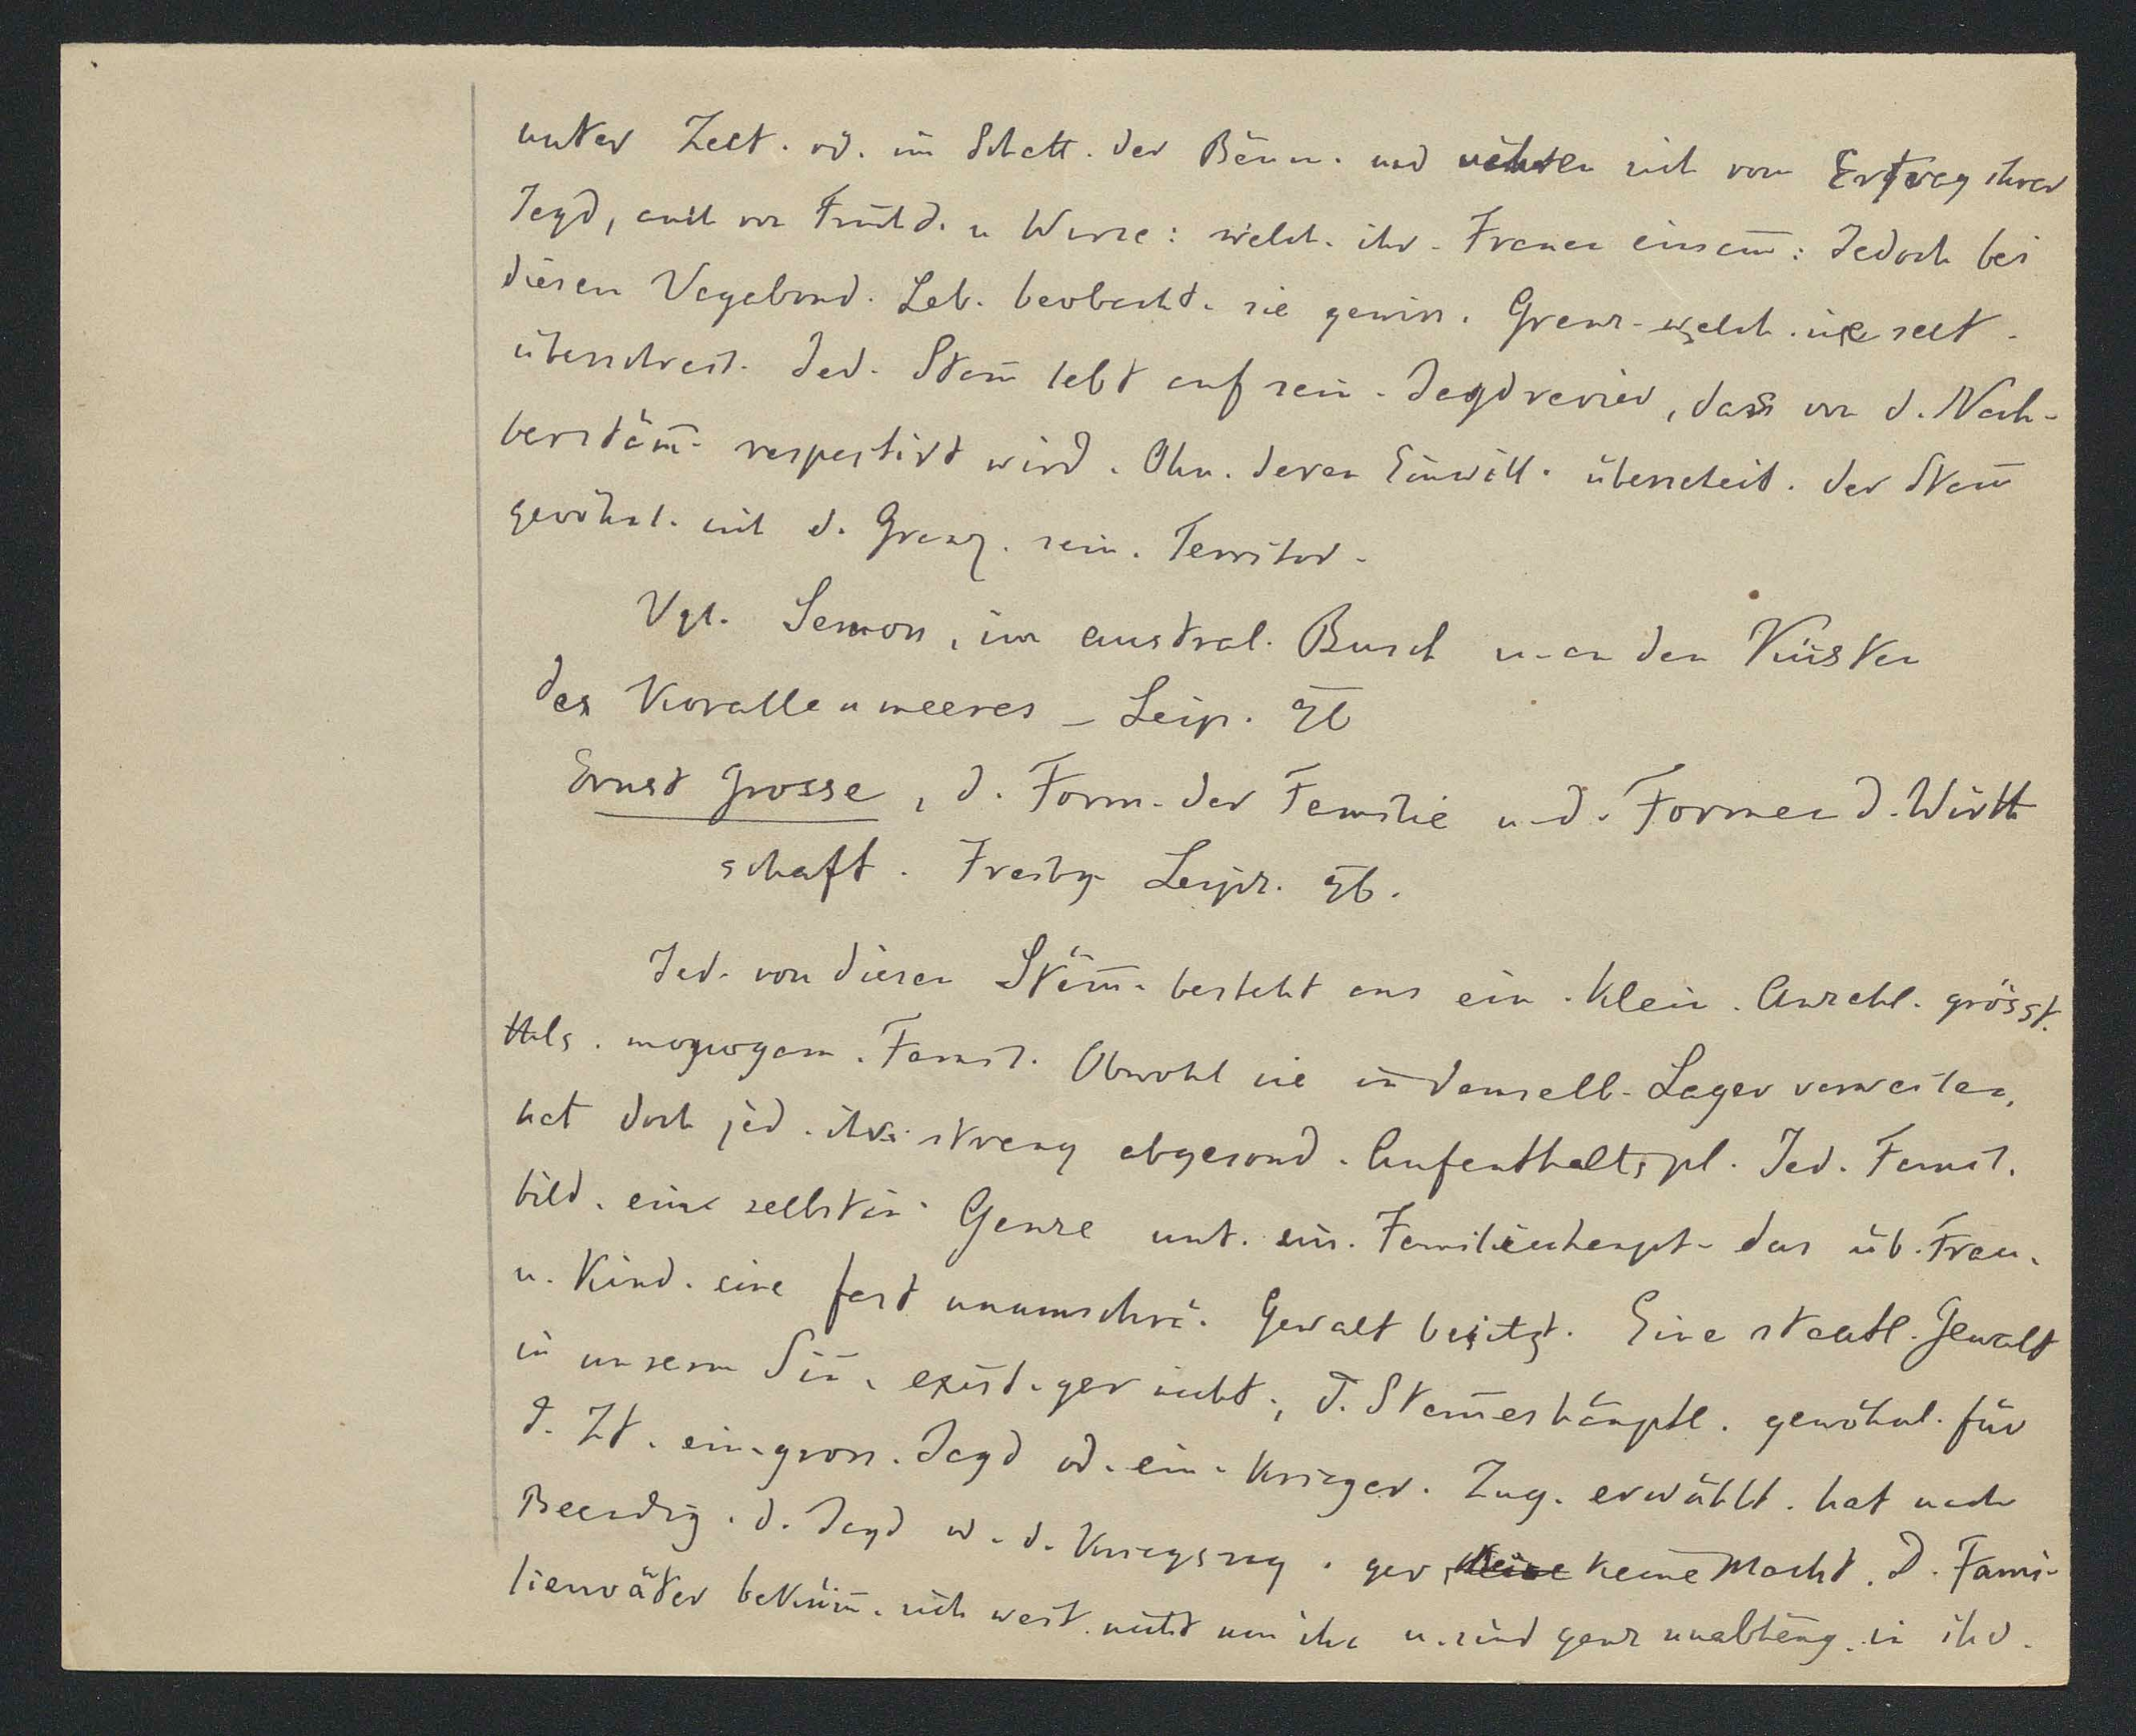 unter Zelt. od. im Schatt. der Bäum. und nähren sich vom Ertrag ihrer
Jagd, auch von Frücht. u Wurze: welch. ihr. Frauen einsam̅: Jedoch bei
diesem Vagabund. Leb. beobacht. sie gewiss. Grenz. welch. sie selt.
überschreit. Jed. Stam̅ lebt auf sein. Jagdrevier, dass von d. Nach-
berstäm̅. respectirt wird. Ohn. deren Einwill. überscheit. der Stam̅
gewöhnl. nicht d. Grenz. sein. Territor.
Vgl. Semon, im austral. Busch u. an den Küsten
des Korallenmeeres – Leip. 96
Ernst Grosse, d. Form. der Familie u. d. Formen d. Wirth
schaft. Freibg. Leipz. 96.
Jed. von diesen Stäm̅. besteht aus ein. klein. Anzahl. grösst.
thls. monogam. Famil. Obwohl sie in demselb. Lager verweilen,
hat doch jed. ihr. streng abgesond. Aufenthaltspl. Jed. Famil.
bild. eine selbstän. Ganze unt. ein. Familienhaupt. das üb. Frau.
u. Kind. eine fast unumschrä. Gewalt besitzt. Eine staatl. Gewalt
in unserm Sin̅. exist. gar nicht., D. Stam̅eshäuptl. gewöhnl. für
d. Zt. ein. gross. Jagd od. ein. krieger. Zug. erwählt. hat nach
Beendig. d. Jagd od. d. Kriegszug. gar keine Macht. D. Fami-
lienväter beküm̅. sich weit. nicht um ihn u. sind ganz unabhäng. in ihr.